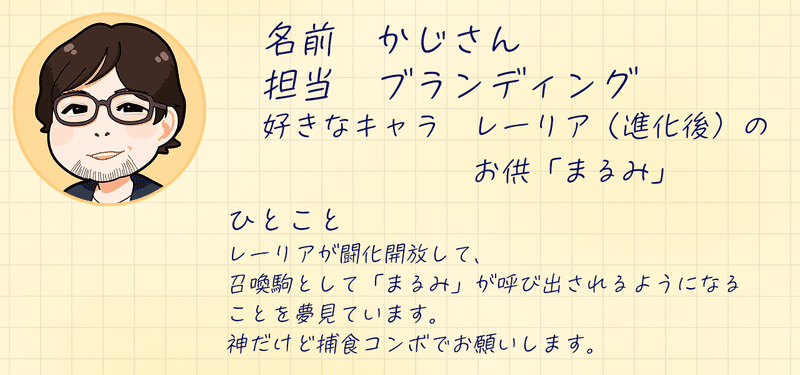 名前　かじさん
担当　ブランディング
好きなキャラ　レーリア（進化後）の
お供「まるみ」
ひとこと
レーリアが闘化開放して、
召喚駒として「まるみ」が呼び出されるようになる
ことを夢見ています。
神だけど捕食コンボでお願いします。